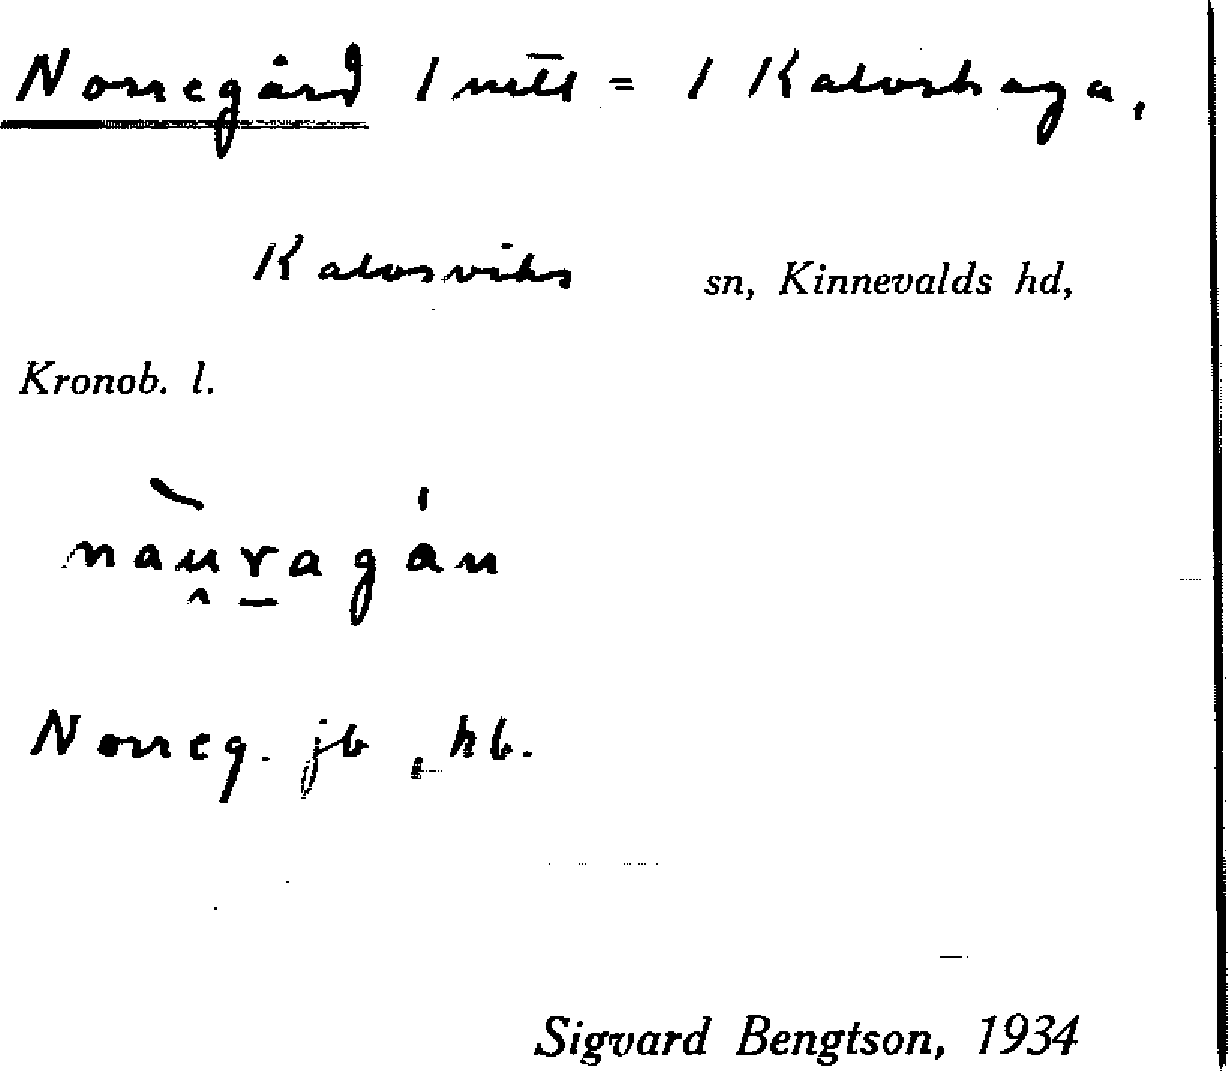 Norregård 1 mtl = 1 Kalvshaga,
Kalvsviks sn, Kinnevalds hd,
Kronob. l.
nau̯ragán
Norreg. jb, hb.
Sigvard Bengtson, 1934